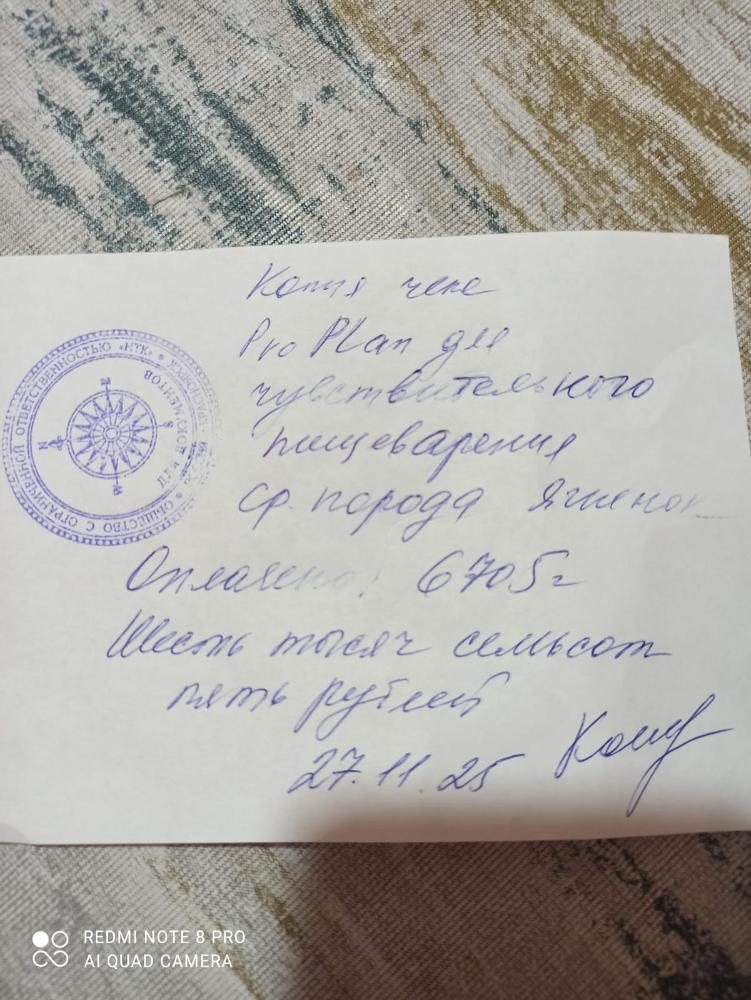 Копия чека
Pro Plan для
чувствительного
пищеварения
ср. порода ягненок
Оплачено: 6705=
Шесть тысяч семьсот
пять рублей
27.11.25
ОБЩЕСТВО С ОГРАНИЧЕННОЙ ОТВЕТСТВЕННОСТЬЮ «НТК»
ДЛЯ ДОКУМЕНТОВ
N
S
REDMI NOTE 8 PRO
AI QUAD CAMERA